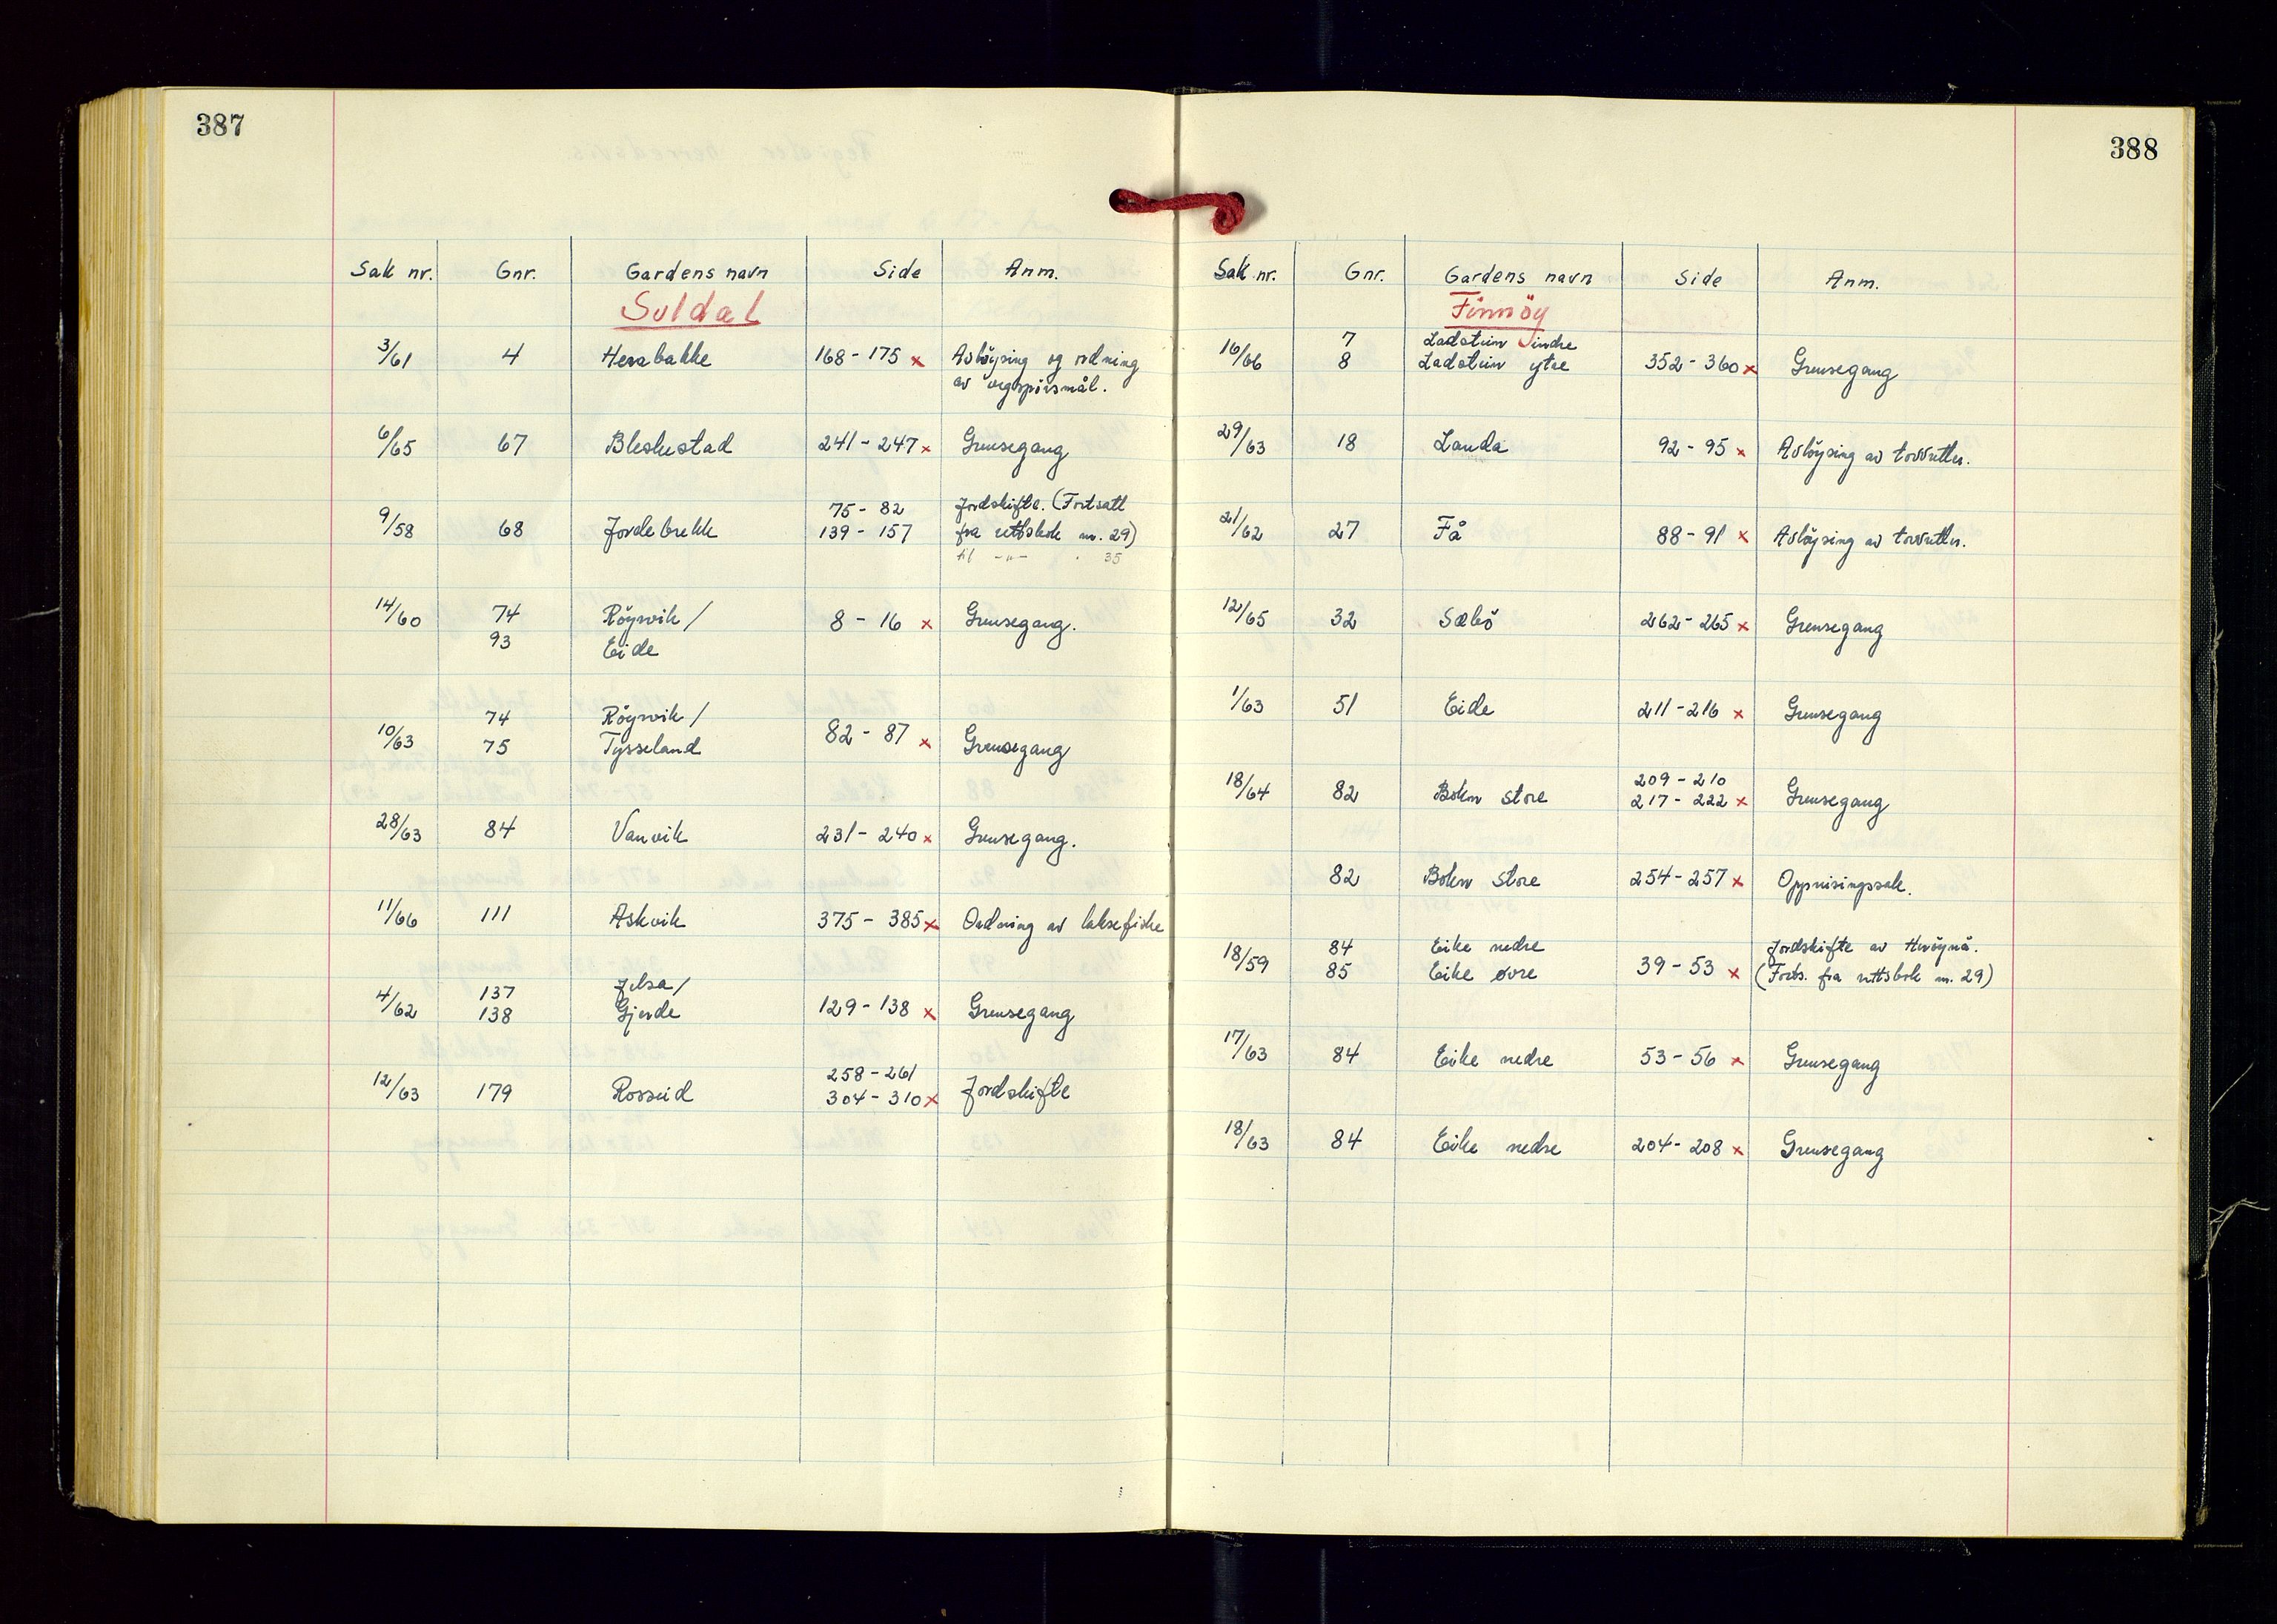 387
Sak nr. Gnr. Gardens navn Side Anm.
Suldal
3/61 4 Herabakke 168 - 175 x Avløysing og ordning
av vegspörsmål.
6/65 67 Bleskestad 241 - 247 x Grensegang
75 - 82 Jordskifte. (Fortsatt
9/58 68 Jordebrekk 139 - 157 fra rettsbok nr. 29)
til -"- 35
14/60 74 Röysvik / 8 - 16 x Grensegang.
93 Eide
74 Röysvik /
10/63 75 Tysseland 82 - 87 x Grensegang
28/63 84 Vanvik 231 - 240 x Grensegang.
11/66 111 Askvik 375 - 385 x Ordning av laksefiske
137 Jelsa /
4/62 138 Gjerde 129 - 138 x Grensegang
258 - 261
12/63 179 Rosseid 304 - 310 x Jordskifte
388
Sak nr. Gnr. Gardens navn Side Anm.
Finnöy
7 Ladstein indre
16/66 8 Ladstein ytre 352 - 360 x Grensegang
29/63 18 Landa 92 - 95 x Avlöysing av torvretter.
21/62 27 Få 88 - 91 x Avlöysing av torvretter.
12/65 32 Sæbö 262 - 265 x Grensegang
1/63 51 Eide 211 - 216 x Grensegang
209 - 210
18/64 82 Bokn store 217 - 222 x Grensegang
82 Bokn store 254 - 257 x Oppreisingssak.
84 Eike nedre Jordskifte av Hersöynå.
18/59 85 Eike øvre 39 - 53 x (Forts. fra rettsbok nr. 29)
17/63 84 Eike nedre 53 - 56 x Grensegang
18/63 84 Eike nedre 204 - 208 x Grensegang